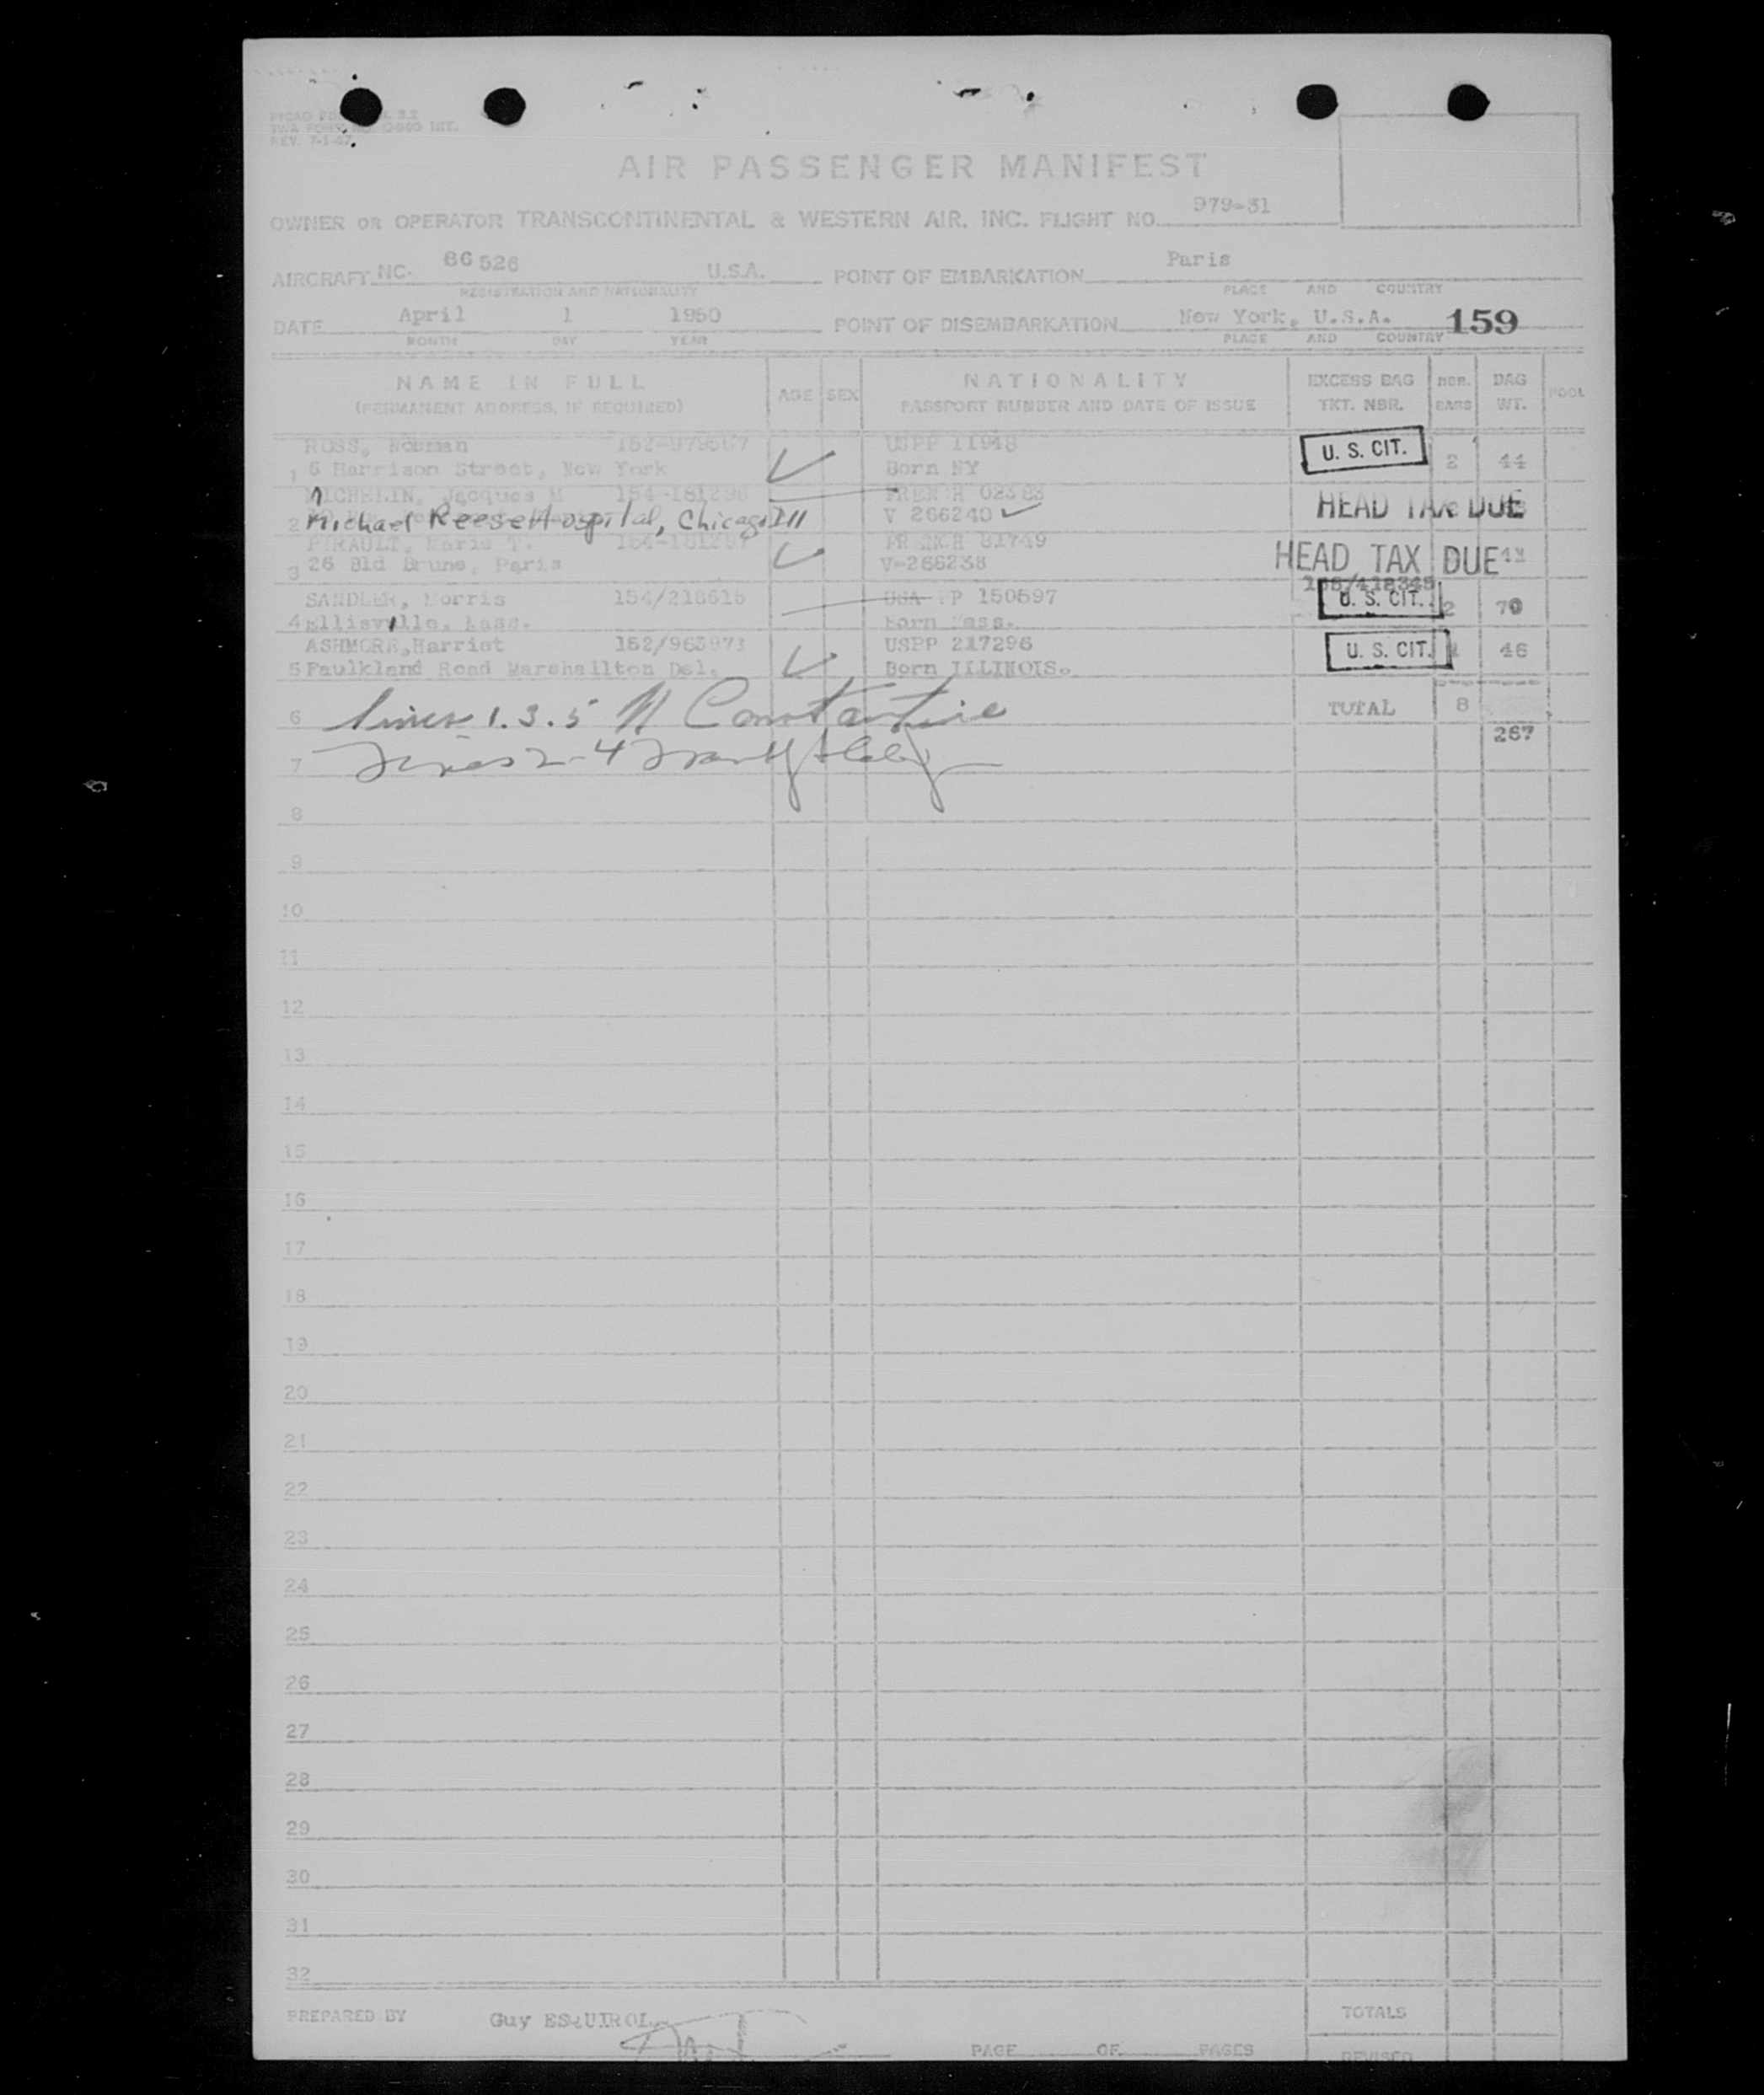 REV. 7-1-47
AIR PASSENGER MANIFEST
OWNER OR OPERATOR TRANSCONTINENTAL & WESTERN AIR, INC. FLIGHT NO. 979-31
AIRCRAFT NC. 86526 U.S.A. POINT OF EMBARKATION Paris
REGISTRATION AND NATIONALITY PLACE AND COUNTRY
DATE April 1 1950 POINT OF DISEMBARKATION New York, U.S.A. 159
MONTH DAY YEAR PLACE AND COUNTRY
NAME IN FULL AGE SEX NATIONALITY EXCESS BAG NBR. BAG POOL
(PERMANENT ADDRESS, IF REQUIRED) PASSPORT NUMBER AND DATE OF ISSUE TKT. NBR. WT.
ROSS, USPP 11948 U. S. CIT. 2 44
1 6 Harrison Street, New York Born NY
MICHELIN, Jacques M FRENCH HEAD TAX DUE
2 Michael Reese Hospital, Chicago Ill V 266240
FRENCH 81749 HEAD TAX DUE
3 26 Bld Brune, Paris V-266238
SANDLER, Morris 154/218615 USA PP 150597 U. S. CIT. 2 70
4 Ellisville, Mass. Born Mass.
ASHMORE, Harriet 152/963973 USPP 217296 U. S. CIT. 46
5 Faulkland Road Marshallton Del. Born ILLINOIS.
6 lines 1.3.5 N Constantine TOTAL 8
267
7 Lines 2-4
8
9
10
11
12
13
14
15
16
17
18
19
20
21
22
23
24
25
26
27
28
29
30
31
32
PREPARED BY Guy ESQUIROL TOTALS
PAGE OF PAGES REVISED